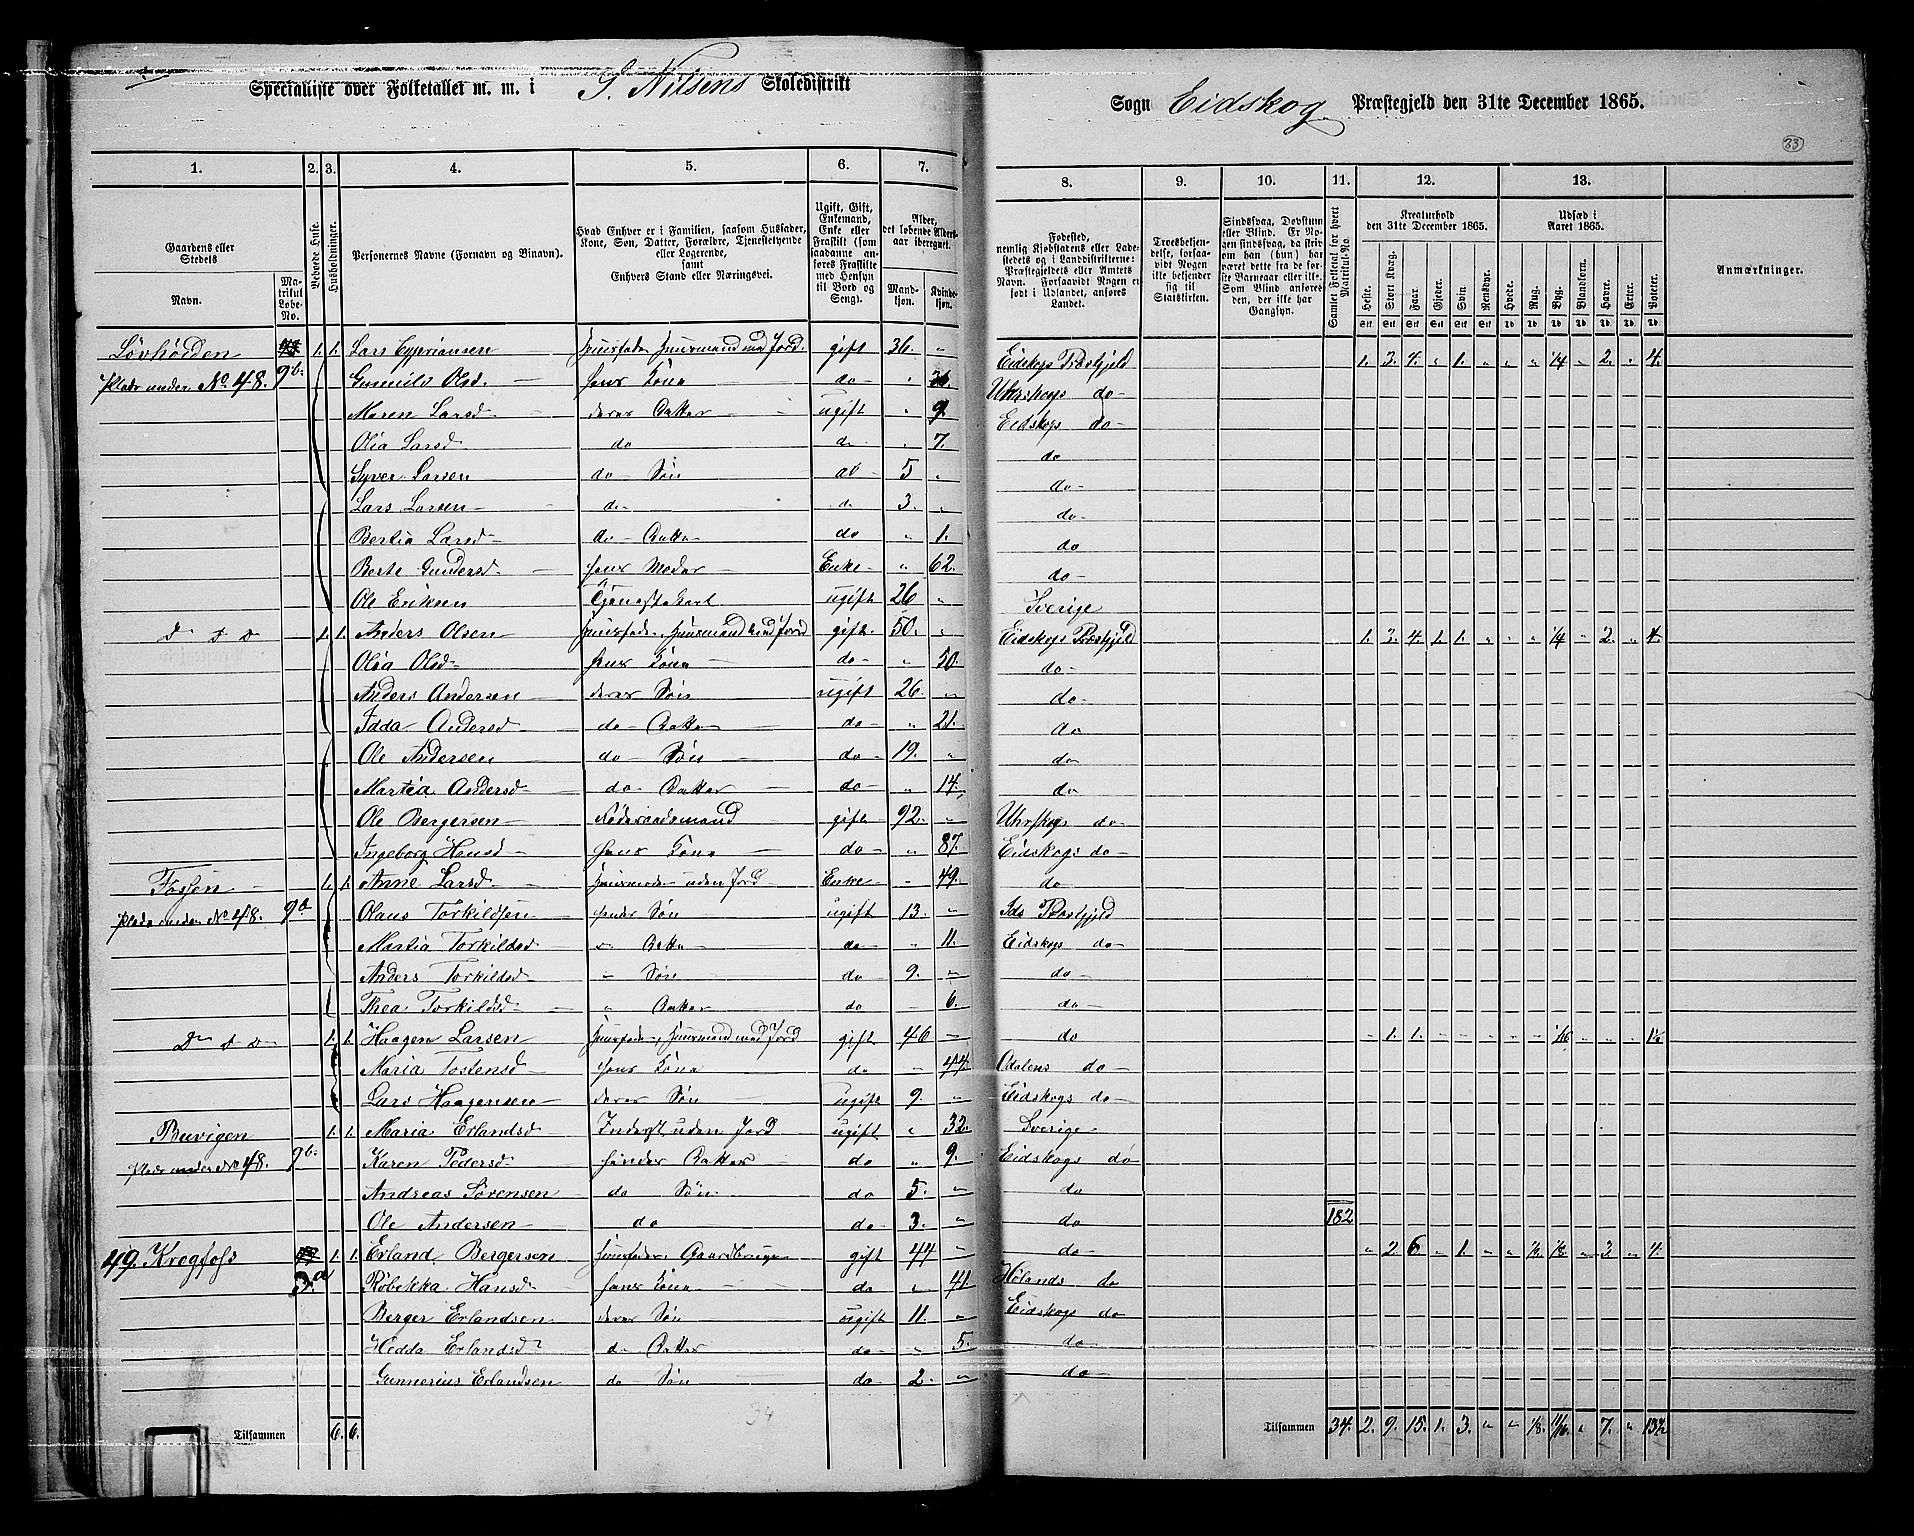 Specialliste over Folketallet m. m. i S. Nilsens Skoledistrikt
Sogn Eidskog Præstegjeld den 31te December 1865.
33
1. 2. 3. 4. 5. 6. 7. 8. 9. 10. 11. 12. 13.
Gaardens eller Stedets Navn.
Matrikul Løbe-No.
Beboede Huse.
Husholdninger.
Personernes Navne (Fornavn og Binavn).
Hvad Enhver er i Familien, saasom Husfader, Kone, Søn, Datter, Forældre, Tjenestetyende eller Logerende, samt Enhvers Stand eller Næringsvei.
Ugift, Gift, Enkemand, Enke eller Fraskilt (som saadanne anføres Fraskilte med Hensyn til Bord og Seng).
Alder, det løbende Aldersaar iberegnet.
Mandkjøn. Kvindekjøn.
Fødested, nemlig Kjøbstadens eller Ladestedets og i Landdistrikterne: Præstegjeldets eller Amtets Navn. Forsaavidt Nogen er født i Udlandet, anføres Landet.
Troesbekjendelse, forsaavidt Nogen ikke bekjender sig til Statskirken.
Sindssvag, Døvstum eller Blind. Er Nogen sindssvag, da skrives om han (hun) har været dette fra de første Barneaar eller ikke. Som Blind anføres den, der ikke har Gangsyn.
Samlet Folketal for hvert Matrikul-No.
Kreaturhold den 31te December 1865.
Heste. Stort Kvæg. Faar. Gjeder. Svin. Rensdyr.
Udsæd i Aaret 1865.
Hvede. Rug. Byg. Blandkorn. Havre. Erter. Poteter.
Anmærkninger.
Lövhöiden 1. 1. Lars Cypriansen Huusfader Huusmand med Jord. gift 36. " Eidskogs Præstgjeld 1. 3. 4. " 1. " " " 1/4 " 2. " 4.
Plads under No 48. 9b. Gunnild Olsd. hans Kone do " 36. Uhrskogs do
Maren Larsd deres Datter ugift " 9. Eidskogs do
Olia Larsd do do " 7. do
Syver Larsen do Søn do 5 " do
Lars Larsen do do 3. " do
Bertia Larsd do Datter do " 1. do
Berte Gundersd hans Moder Enke " 62. do
Ole Eriksen Tjenestekarl ugift 26 " Sverige
d o d o 1. 1. Anders Olsen Huusfader, Huusmand med Jord gift 50. " Eidskogs Præstgjeld 1. 3. 4. 1. 1. " " " 1/4 " 2. " 4.
Olia Olsd hans Kone do " 50. do
Anders Andersen deres Søn ugift 26. " do
Idda Andersd do Datter do " 21. do
Ole Andersen do Søn do 19. " do
Martia Andersd do Datter do " 14. do
Ole Bergersen Føderaadsmand gift 92. " Uhrskogs do
Ingeborg Hansd hans Kone do " 87. Eidskogs do
Fossen 1. 1. Anne Larsd Huusmoder uden Jord Enke " 49. do
Plads under No 48. 9b Olaus Torkildsen hendes Søn ugift 13. " Ids Præstgjeld
Martia Torkildsd " Datter do " 11. Eidskogs do
Anders Torkildsd " Søn do 9. " do
Thea Torkildsd " Datter do 6. do
Do d o 1. 1. Haagen Larsen Huusfader, Huusmand med Jord gift 46 " do " 1. 1. " " " " " 1/16 " " " 1½
Maria Tostensd hans Kone do " 44. Odalens do
Lars Haagensen deres Søn ugift 9. " Eidskogs do
Buvigen 1. 1. Maria Erlandsd Inderst uden Jord ugift " 32. Sverige
Plads under No 48. 9b. Karen Pedersd hendes Datter do " 9. Eidskogs do
Andreas Sørensen do Søn do 5. " do
Ole Andersen do do 3. " do 182
49. Krogfoss 1. 1. Erland Bergersen Huusfader Gaardbruger gift 44 " do " 2. 6. " 1. " " 1/8 1/8 " 3. " 4.
3.a Røbekka Hansd hans Kone do " 41. Hølands do
Berger Erlandsen deres Søn ugift 11. " Eidskogs do
Hedda Erlandsd do Datter do " 5. do
Gunnerius Erlandsen do Søn do 2. " do
34
Tilsammen 6. 6.
Tilsammen 34. 2. 9. 15. 1. 3. " " 1/8. 11/16. " 7. " 13½